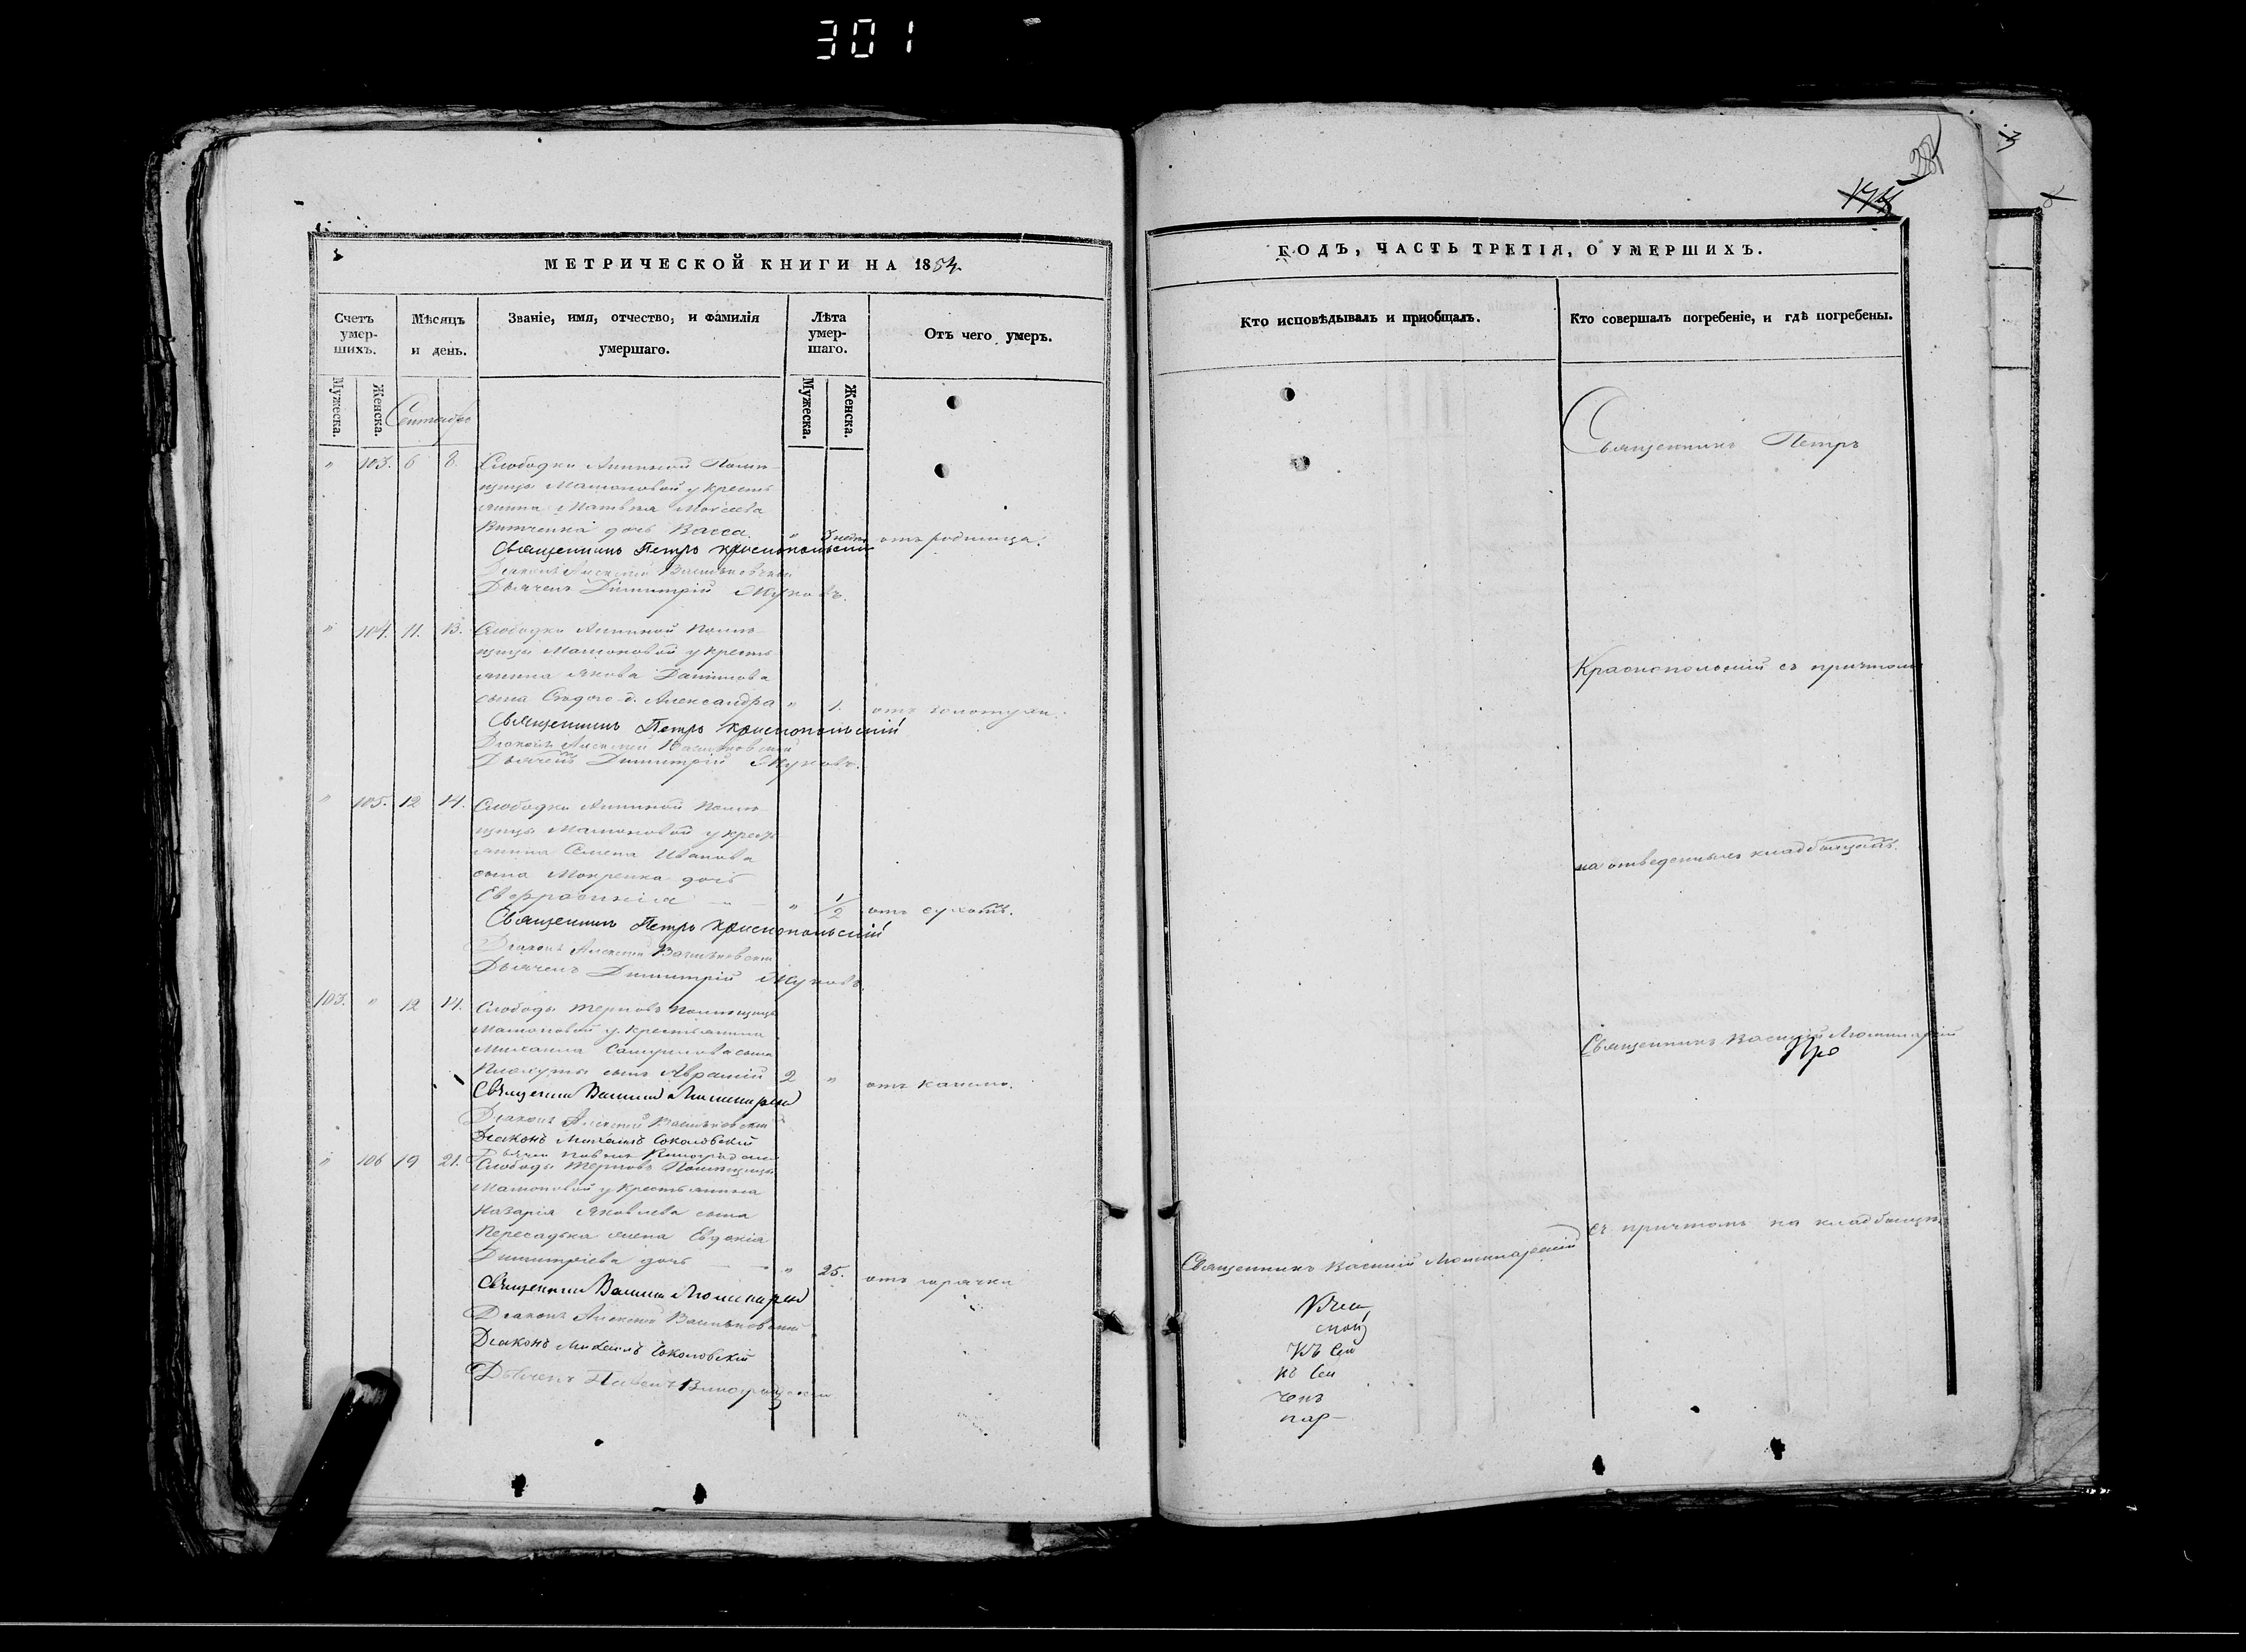 301
174
МЕТРИЧЕСКОЙ КНИГИ НА 1854.
Счетъ умершихъ.
Мѣсяцъ и день.
Званіе, имя, отчество, и фамилія умершаго.
Лѣта умершаго.
Отъ чего умеръ.
Мужеска.
Женска.
Мужеска.
Женска.
Сентябрь
" 103. 6 8. Слободки Аниной Помѣ-
щицы Мамоновой у кресть
янина Матвѣя Моисеева
дочь Васса. "
отъ родимца.
Священникъ Петръ Краснопольскій
Діаконъ Алексѣй Васильковскій
Дьячекъ Димитрій Жуковъ.
" 104. 11. 13. Слободки Аниной Помѣ-
щицы Мамоновой у кресть
янина Якова Данилова
сына д. Александра " 1. отъ золотухи.
Священникъ Петръ Краснопольскій
Діаконъ Алексѣй Васильковскій
Дьячекъ Димитрій Жуковъ.
" 105. 12 14. Слободки Аниной Помѣ-
щицы Мамоновой у крест-
янина Семена Иванова
сына Мокренка дочь
Евфросинія " 1/2 отъ сухотъ.
Священникъ Петръ Краснопольскій
Діаконъ Алексѣй Васильковскій
Дьячекъ Димитрій Жуковъ
103. " 12 14. Слободы Терновъ Помѣщицы
Мамоновой у крестьянина
Михаила сына
сынъ 2 " отъ кашлю.
Священникъ Василій
Діаконъ Алексѣй Васильковскій
Діаконъ Михаилъ Соколовскій
" 106 19 21. Слободы Терновъ Помѣщицы
Мамоновой у крестьянина
Назарія Яковлева сына
Пересадька жена Евдокія
Димитріева дочь " 25. отъ горячки
Священникъ Василій
Діаконъ Алексѣй Васильковскій
Діаконъ Михаилъ Соколовскій
Дьячекъ Павелъ
ГОДЪ, ЧАСТЬ ТРЕТІЯ, О УМЕРШИХЪ.
Кто исповѣдывалъ и пріобщалъ.
Кто совершалъ погребеніе, и гдѣ погребены.
Священникъ Петръ
Краснопольскій съ причтомъ
на отведенныхъ кладбищахъ.
Священникъ Василій
съ причтомъ на кладбищѣ
Священникъ Василій